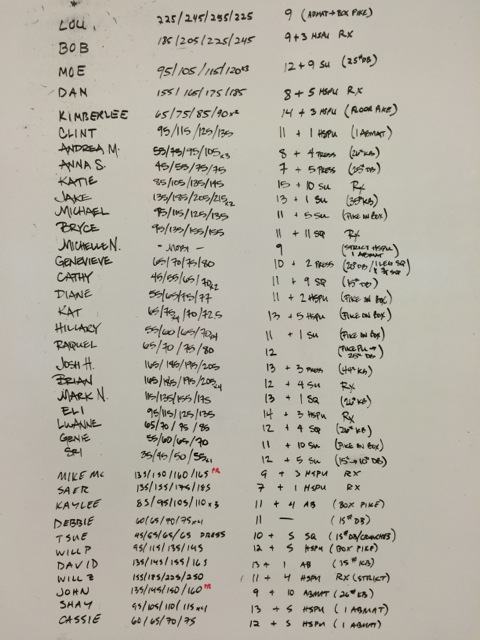 LOU 225/245/255/225 9 (ABMAT → BOX PIKE)
BOB 185/205/225/245 9 + 3 HSPU RX
MOE 95/105/115/120x3 12 + 9 SU (25# DB)
DAN 155/165/175/185 8 + 5 HSPU RX
KIMBERLEE 65/75/85/90x2 14 + 3 HSPU (FLOOR PIKE)
CLINT 95/115/125/135 11 + 1 HSPU (1 ABMAT)
ANDREA M. 55/75/95/105x3 8 + 4 PRESS (26# KB)
ANNA S. 45/55/75/75 7 + 5 PRESS (25# DB)
KATIE 85/105/135/145 15 + 10 SU RX
JAKE 135/185/205/215x2 13 + 1 SU (35# KB)
MICHAEL 95/115/125/135 11 + 5 SU (PIKE ON BOX)
BRYCE 95/135/155/155 11 + 11 SQ RX
MICHELLE N. 9 (STRICT HSPU 1 ABMAT)
GENEVIEVE 65/70/75/80 10 + 2 PRESS (20# DB / 1 LEG SQ
CATHY 45/55/65/70x2 11 + 9 SQ (15# DB)
DIANE 55/65/75/77 11 + 2 HSPU (PIKE ON BOX)
KAT 65/75x4/70/72.5 13 + 5 HSPU (PIKE ON BOX)
HILLARY 55/60/65/70x4 11 + 1 SU (PIKE ON BOX)
RAQUEL 65/70/75/80 12 25# DB)
JOSH H. 165/185/195/205 13 + 3 PRESS (44# KB)
BRIAN 165/185/195/205x4 12 + 4 SU RX
MARK N. 115/135/155/175 13 + 1 SQ (26# KB)
ELI 95/115/125/135 14 + 3 HSPU RX
LUANNE 65/70/75/85 12 + 4 SQ (26# KB)
GENIE 55/60/65/70 11 + 10 SU (PIKE ON BOX)
SRI 35/45/50/55x1 12 + 5 SU (15# → 10# DB)
MIKE MC 135/150/160/165 PR 9 + 3 HSPU RX
SAER 135/155/175/185 7 + 1 HSPU RX
KAYLEE 85/95/105/110x3 11 + 4 AB (BOX PIKE)
DEBBIE 60/65/70/75x4 11 — (15# DB)
TSUE 45/65/65/65 PRESS 10 + 5 SQ (15# DB/CRUNCHES)
WILL P 95/115/135/145 12 + 5 HSPU (BOX PIKE)
DAVID 135/145/155/165 13 + 1 AB (15# KB)
WILL Z 155/185/225/250 11 + 4 HSPU RX (STRICT)
JOHN 135/145/150/160 PR 9 + 10 ABMAT (26# KB)
SHAY 95/105/110/115x4 13 + 5 HSPU (1 ABMAT)
CASSIE 60/65/70/75 12 + 5 HSPU (1 ABMAT)